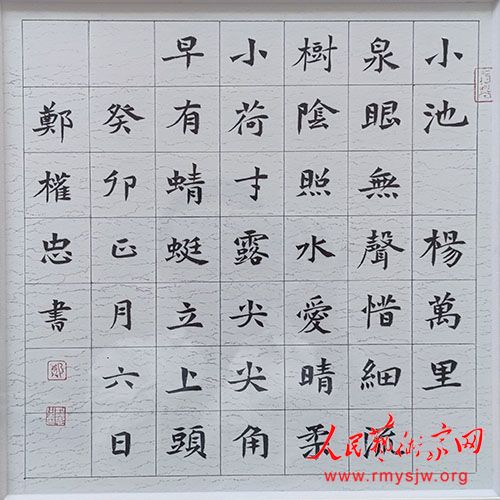 小池 楊萬里
泉眼無聲惜細流
樹陰照水愛晴柔
小荷才露尖尖角
早有蜻蜓立上頭
癸卯正月六日
鄭權忠書
人民艺术家网
www.rmysjw.org